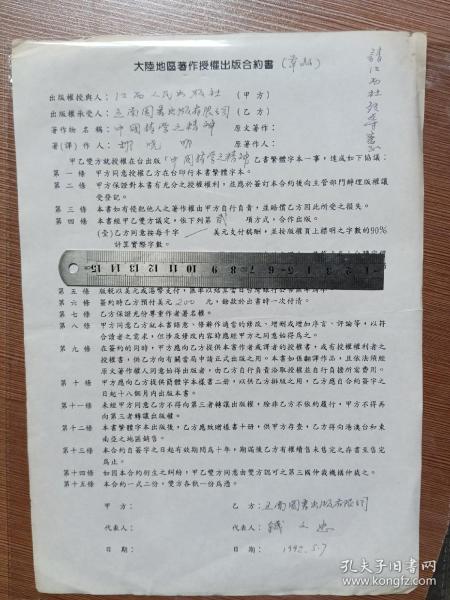 大陸地區著作授權出版合約書(草約)
出版權授與人：江西人民出版社（甲方）
出版權承受人：五南圖書出版有限公司（乙方）
著作物名稱：中國哲學之精神 原文著作：
著(譯)作人：胡曉明 原著作人：
甲乙雙方就授權在台出版「中國哲學之精神」乙書繁體字本一事，達成如下協議：
第一條 甲方同意授權乙方在台印行本書繁體字本。
第二條 甲方保證對本書有充分之授權權利，並應於簽訂本合約後向主管部門辦理版權讓
受登記。
第三條 本書如有侵犯他人之著作權由甲方自行負責，並賠償乙方因此所受之損失。
第四條 本書經甲乙雙方議定，依下列第貳項方式，合作出版。
(壹)乙方同意按每千字 美元支付稿酬，並按版權頁上標明之字數的90%
計算實際字數。
15 14 13 12 11 10 9 8 7 6 5 4 3 2 1
第五條 版稅以美元或港幣支付，匯率以結算當日台灣銀行
第六條 簽約時乙方預付美元200元，餘款於出書時一次付清。
第七條 乙方保證充分尊重作者著名權。
第八條 甲方同意乙方就本書語意、修辭作適當的修改、增刪或增加序言、評論等，以符
合讀者之需求，但涉及修改內容時應經甲方之同意始得為之。
第九條 在簽約的同時，甲方應向乙方提供本書作者或譯者的授權書，或有授權權利者之
授權書，供乙方向有關當局申請正式出版之用。本書如係翻譯作品，且依法須經
原文著作權人同意始得出版者，由乙方自行負責洽取授權並自行負擔所需費用。
第十條 甲方應向乙方提供簡體字本樣書二冊，以供乙方排版之用，乙方應自合約簽字之
日起十八個月內出版本書。
第十一條 未經甲方同意乙方不得向第三者轉讓出版權，除非乙方不依約履行，甲方不得再
向第三者轉讓出版權。
第十二條 本書繁體字本出版後，乙方應致贈樣書十冊，供甲方存查，乙方得向港澳台和東
南亞之地區銷售。
第十三條 本合約自簽字之日起有效期間為十年，期滿後乙方有權續售未售完之存書至售完
為止。
第十四條 如因本合約衍生之糾紛，甲乙雙方同意由雙方認可之第三國仲裁機構仲裁之。
第十五條 本合約一式二份，雙方各執一份為憑。
甲方： 乙方：五南圖書出版有限公司
代表人： 代表人：
日期： 日期：1992.5.7
孔夫子旧书网